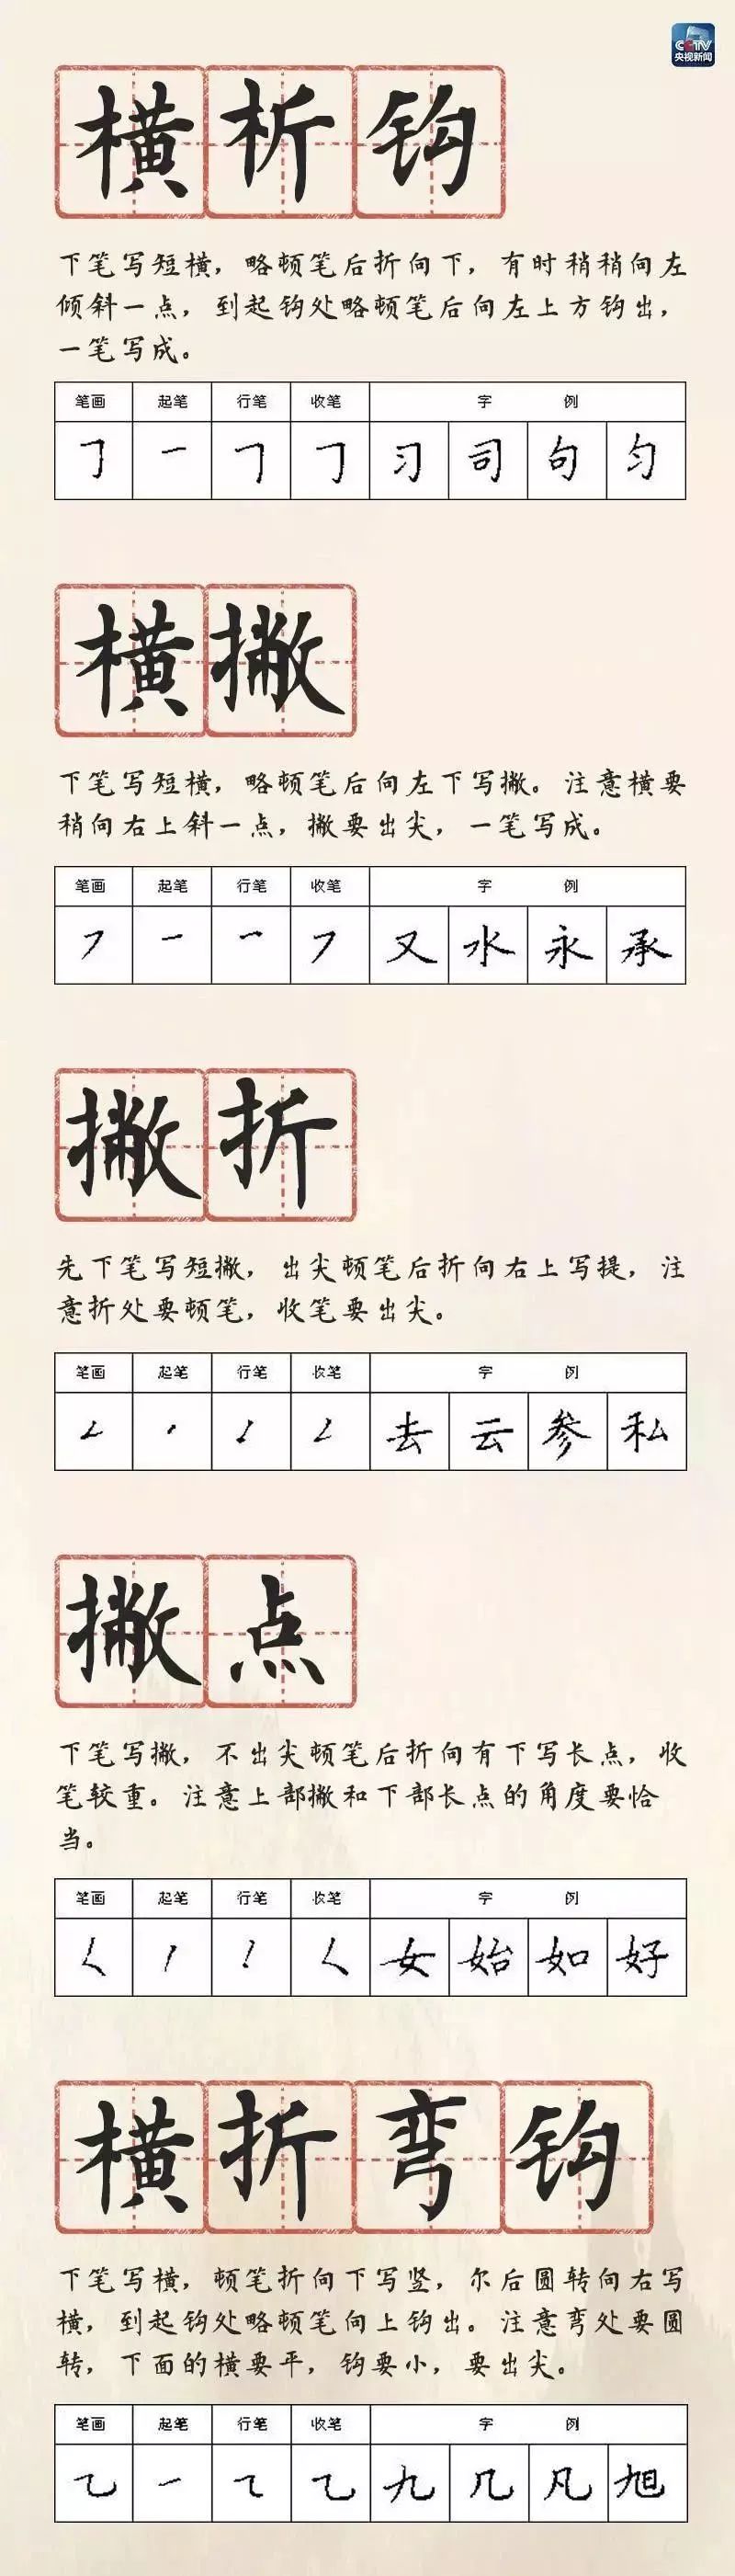 CCTV
央视新闻
横析钩
下笔写短横，略顿笔后折向下，有时稍稍向左
倾斜一点，到起钩处略顿笔后向左上方钩出，
一笔写成。
笔画 起笔 行笔 收笔 字例
𠃌 一 𠃌 𠃌 习 司 句 匀
横撇
下笔写短横，略顿笔后向左下写撇。注意横要
稍向右上斜一点，撇要出尖，一笔写成。
笔画 起笔 行笔 收笔 字例
㇇ 一 ㇖ ㇇ 又 水 永 承
撇折
先下笔写短撇，出尖顿笔后折向右上写提，注
意折处要顿笔，收笔要出尖。
笔画 起笔 行笔 收笔 字例
去 云 参 私
撇点
下笔写撇，不出尖顿笔后折向有下写长点，收
笔较重。注意上部撇和下部长点的角度要恰
当。
笔画 起笔 行笔 收笔 字例
女 始 如 好
横折弯钩
下笔写横，顿笔折向下写竖，尔后圆转向右写
横，到起钩处略顿笔向上钩出。注意弯处要圆
转，下面的横要平，钩要小，要出尖。
笔画 起笔 行笔 收笔 字例
九 几 凡 旭